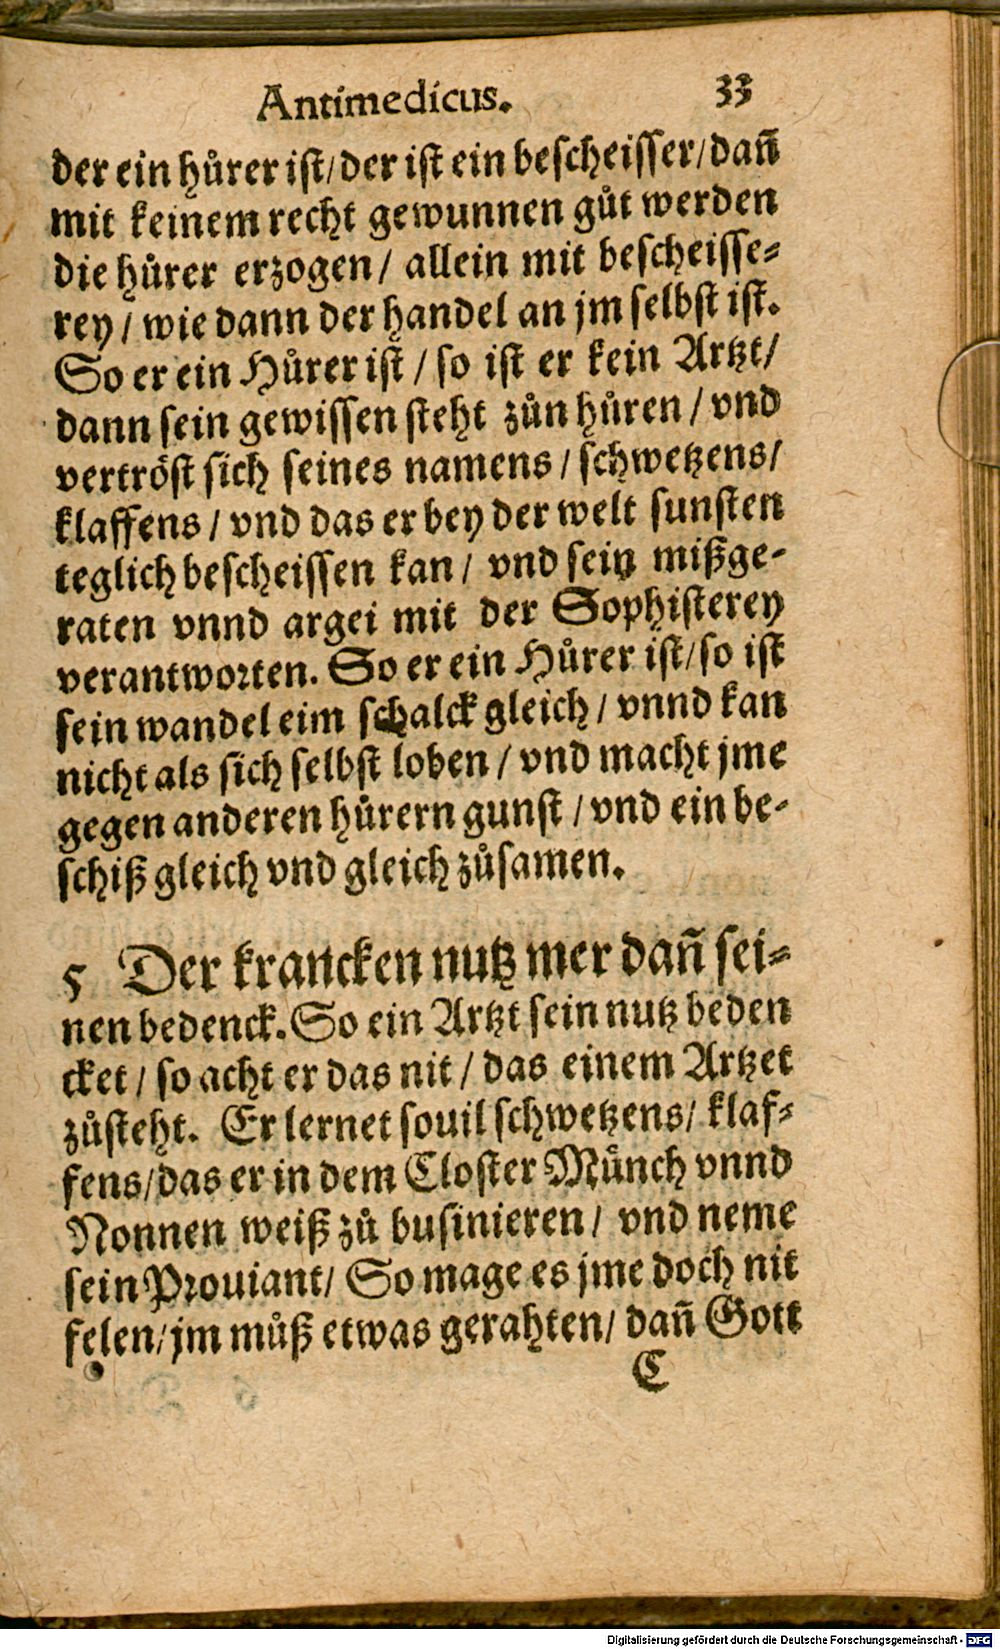 Antimedicus. 33
der ein hůrer ist/der ist ein bescheisser/dañ
mit keinem recht gewunnen gůt werden
die hůrer erzogen/ allein mit bescheisse-
rey/ wie dann der handel an jm selbst ist.
So er ein Hůrer ist/ so ist er kein Artzt/
dann sein gewissen steht zůn hůren/ vnd
vertröst sich seines namens/ schwetzens/
klaffens/ vnd das er bey der welt sunsten
teglich bescheissen kan/ vnd sein mißge-
raten vnnd argei mit der Sophisterey
verantworten. So er ein Hůrer ist/so ist
sein wandel eim schalck gleich/ vnnd kan
nicht als sich selbst loben/ vnd macht jme
gegen anderen hůrern gunst/ vnd ein be-
schiß gleich vnd gleich zůsamen.
5 Der krancken nutz mer dañ sei-
nen bedenck. So ein Artzt sein nutz beden
cket/ so acht er das nit/ das einem Artzet
zůsteht. Er lernet souil schwetzens/ klaf-
fens/das er in dem Closter Münch vnnd
Nonnen weiß zů businieren/ vnd neme
sein Prouiant/ So mage es jme doch nit
felen/jm můß etwas gerahten/ dañ Gott
C
Digitalisierung gefördert durch die Deutsche Forschungsgemeinschaft - DFG